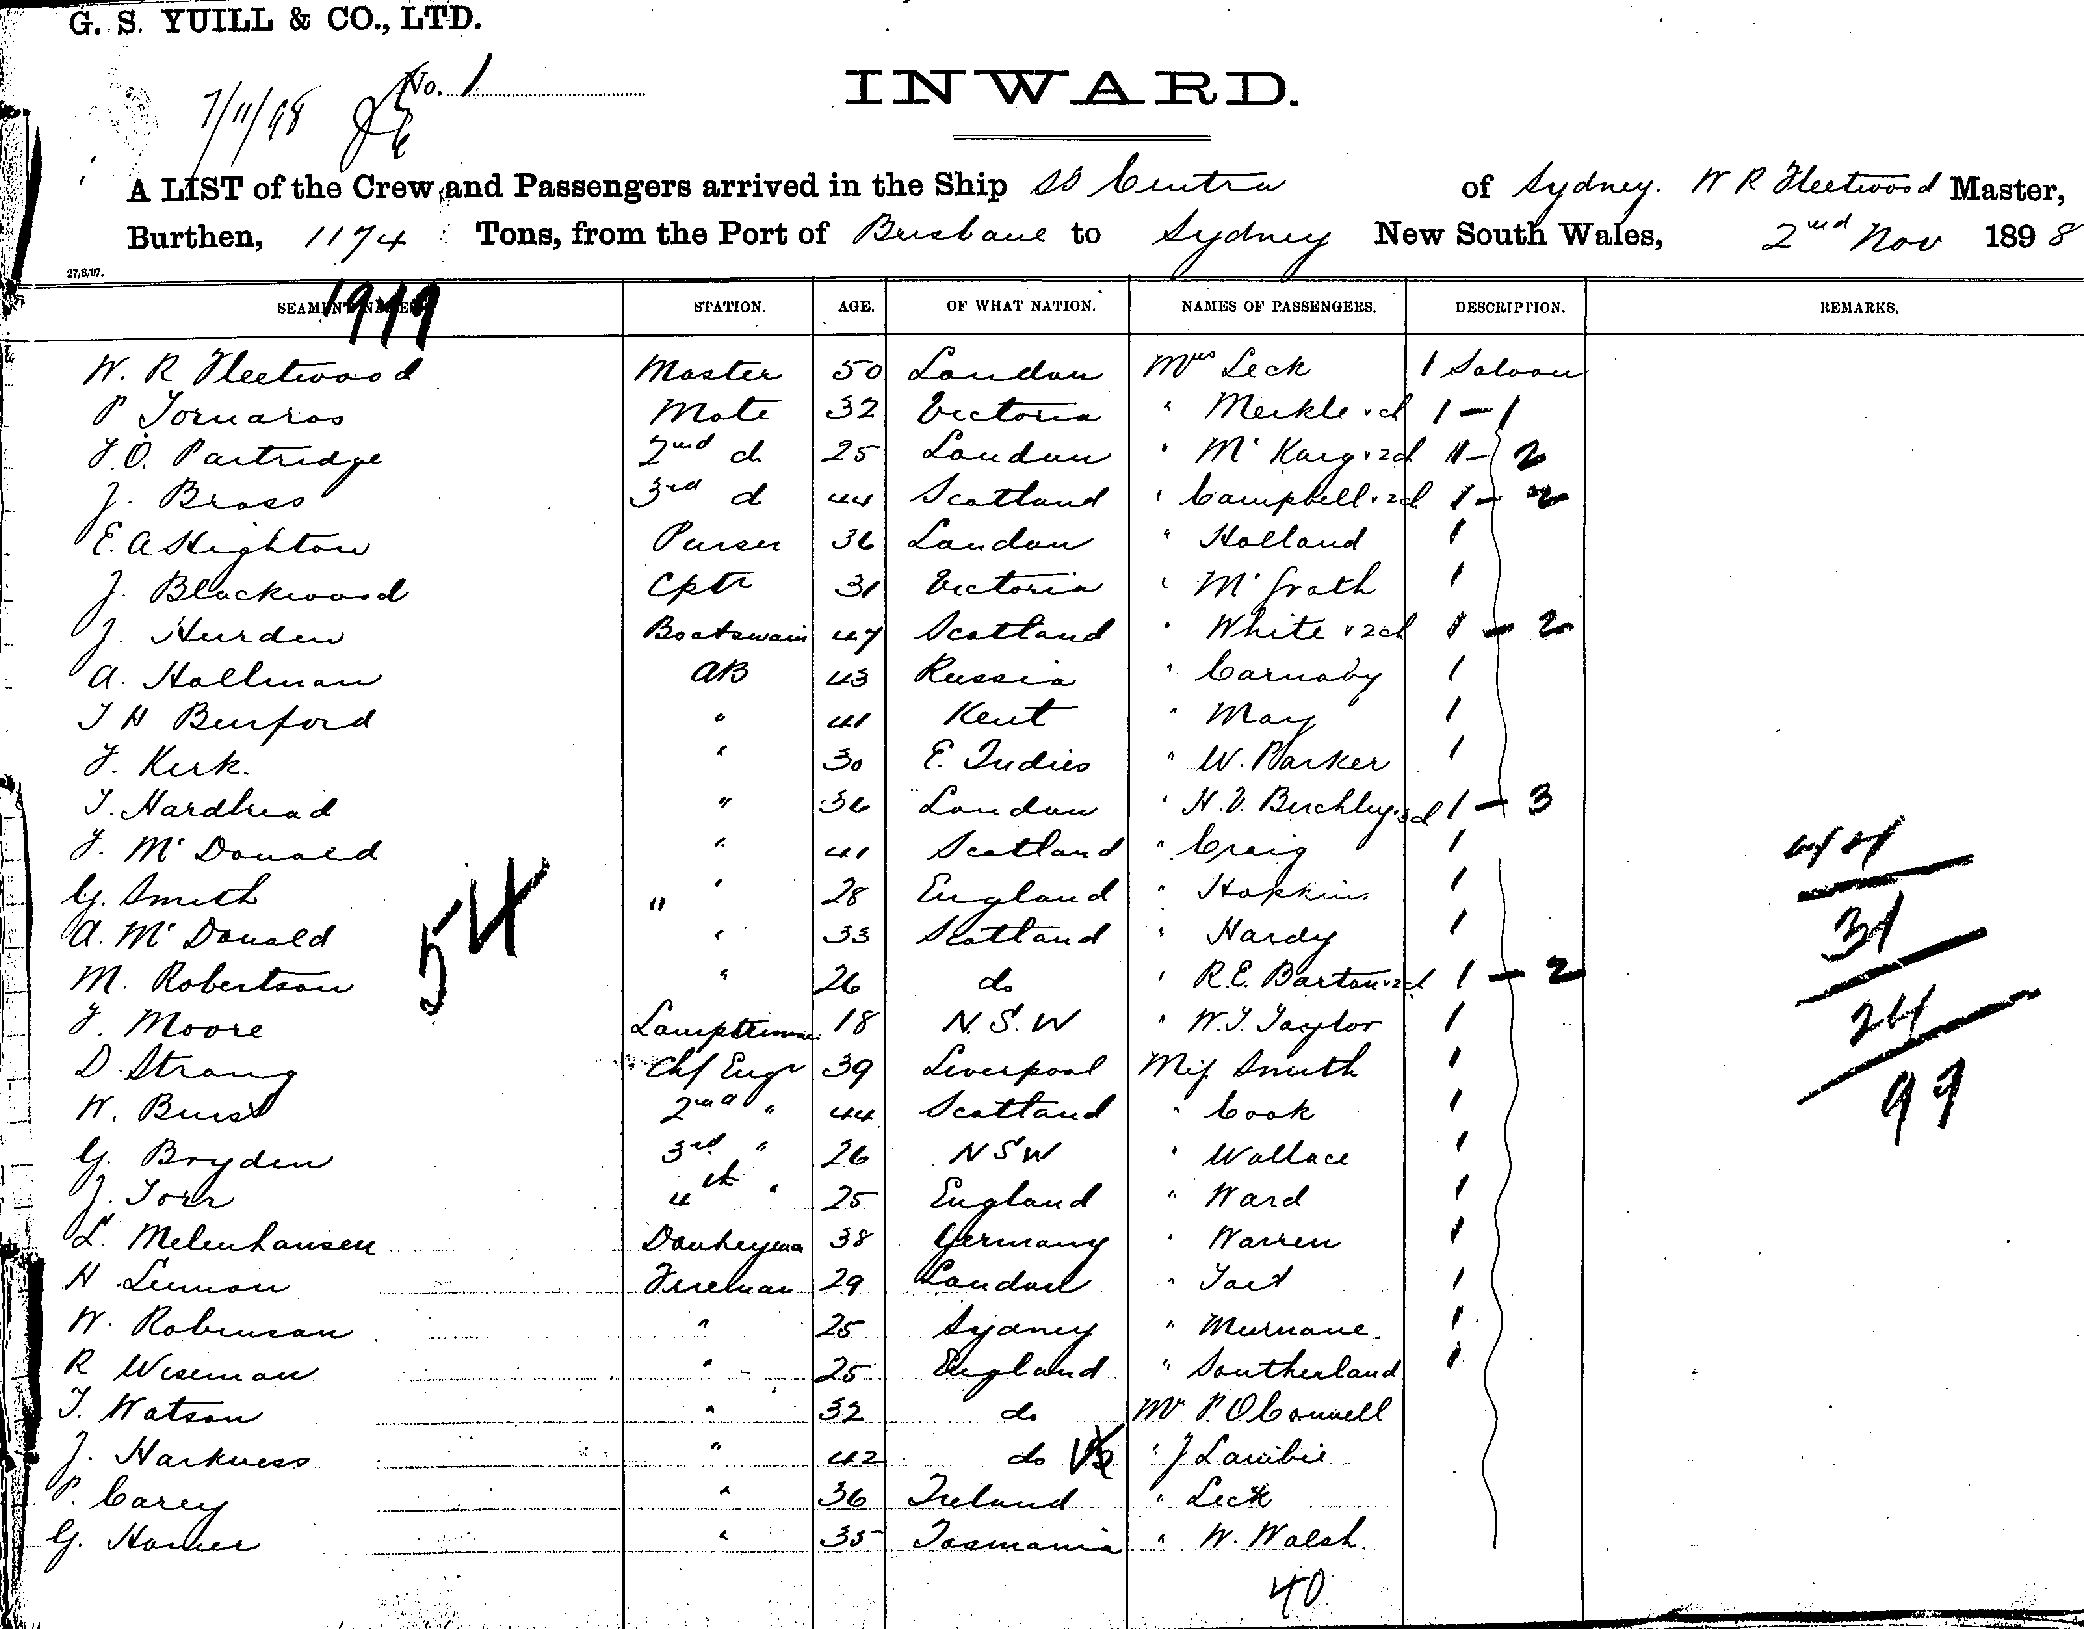 G. S. YUILL & CO., LTD.
No. 1
7/11/98
INWARD.
A LIST of the Crew and Passengers arrived in the Ship SS Cintra of Sydney. W R Fleetwood Master,
Burthen, 1174 Tons, from the Port of Brisbane to Sydney New South Wales, 2nd Nov 1898
27,8,97.
1919
SEAMEN'S NAMES. STATION. AGE. OF WHAT NATION. NAMES OF PASSENGERS. DESCRIPTION. REMARKS.
W. R Fleetwood Master 50 London Mrs Leck 1 Saloon
P Tornaros Mate 32 Victoria " Meikle & ch 1 - 1
F. O. Partridge 2nd do 25 London " McKay & 2 ch 1 - 2
J. Brass 3rd do 44 Scotland " Campbell & 2 ch 1 - 2
E. A Highton Purser 36 London " Holland 1
J. Blackwood Cptr 31 Victoria " McGrath 1
J. Hurden Boatswain 47 Scotland " White & 2 ch 1 - 2
A. Hallman AB 43 Russia " Carnaby 1
T H Burford " 41 Kent " May 1
F. Kirk. " 30 E. Indies " W. Parker 1
T. Hardhead " 36 London " H. V. Birchley & 3 ch 1 - 3
F. McDonald " 41 Scotland " Craig 1
44
G. Smith " " 28 England " Hopkins 1
A. McDonald " 33 Scotland " Hardy 1
31
54
M. Robertson " 26 do " R. E. Barton & 2 ch 1 - 2
F. Moore Lamptrimmer 18 N. S. W " W. T. Taylor 1
24
D. Strang Chf Engr 39 Liverpool Miss Smith 1
W. Buist 2nd " 44 Scotland " Cook 1
99
G. Bryden 3rd " 26 N S W " Wallace 1
J. Torr 4th " 25 England " Ward 1
L. Melenhausen Donkeyman 38 Germany " Warren 1
H Lemon Fireman 29 London " Tait 1
W. Robinson " 25 Sydney " Murnane. 1
R Wiseman " 25 England " Southerland 1
T. Watson " 32 do Mr P. O Connell
J. Harkness " 42 do " J Lambie
P. Carey " 36 Ireland " Leck
G. Homer " 35 Tasmania " W. Walsh.
40